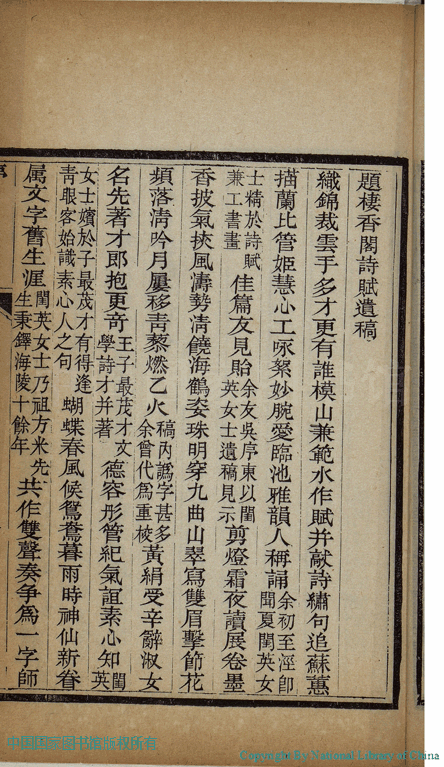 題棲香閣詩賦遺稿
織錦裁雲手多才更有誰模山兼範水作賦并敲詩繡句追蘇蕙
描蘭比管姬慧心工咏絮妙腕愛臨池雅韻人稱誦余初至涇即聞夏閨英女
士精於詩賦兼工書畫佳篇友見貽余友吳序東以閨英女士遺稿見示剪燈霜夜讀展卷墨
香披氣挾風濤勢清饒海鶴姿珠明穿九曲山翠寫雙眉擊節花
頻落清吟月屢移靑藜燃乙火稿內譌字甚多余曾代爲重校黃絹受辛辭淑女
名先著才郎抱更奇王子最茂才文學詩才并著德容彤管紀氣誼素心知閨英
女士嬪於子最茂才有得逢靑眼客始識素心人之句蝴蝶春風候鴛鴦暮雨時神仙新眷
属文字舊生涯閨英女士乃祖方米先生秉鐸海陵十餘年共作雙聲奏争爲一字師
中国国家图书馆版权所有
Copyright By National Library of China